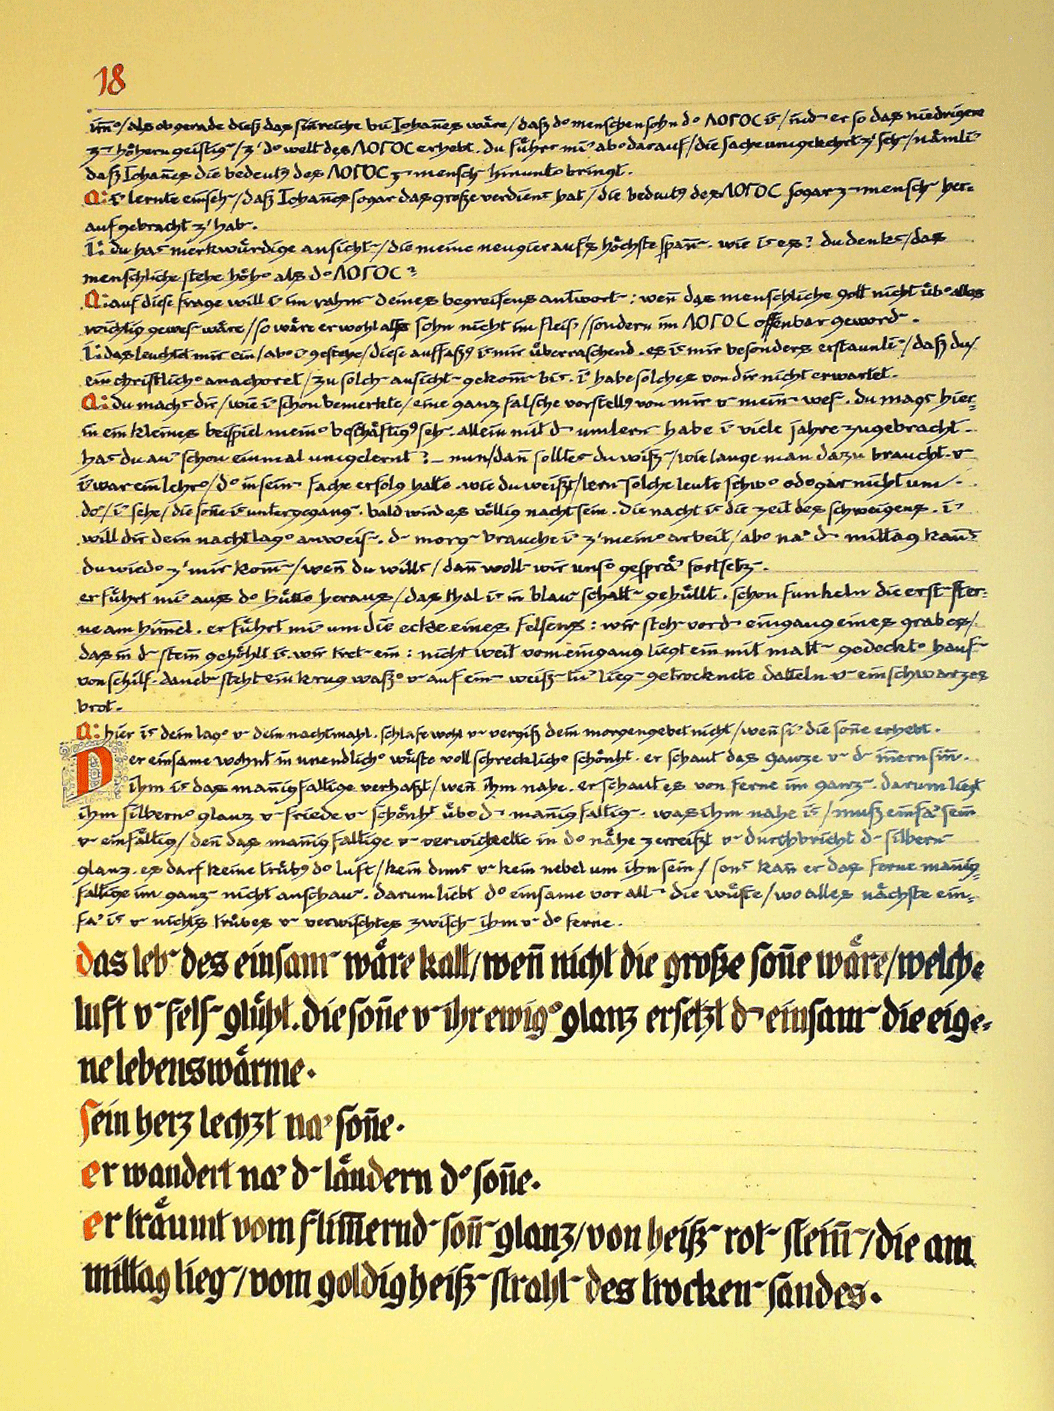 18
im̄°/als ob gerade dieß das sinreiche bei Iohan̄es wäre/daß d° menschensohn d° ΛΟΓΟC is̄/ind̄ er so das niedrigere
z¯ höhern geistig¯/z' d° welt des ΛΟΓΟC erhebt. du führs̄ mī ab° darauf/die sache umgekehrt z' seh¯/nämlī
daß Iohan̄es die bedeut⁹ des ΛΟΓΟC z¯ mensch¯ hinunt° bringt.
A: ī lernte einseh¯/daß Iohan̄es sogar das große verdiens̄ hat/die bedeut⁹ des ΛΟΓΟC sogar z¯ mensch¯ her=
aufgebracht z' hab¯.
I: du has̄ merkwürdige ansicht¯/die meine neugier aufs höchste span̄¯. wie is̄ es? du denks̄/das
menschliche stehe höh° als d° ΛΟΓΟC?
A: auf diese frage will ī im rahm¯ deines begreifens antwort¯: wen̄ das menschliche gott nicht üb° alles
wichtig gewes¯ wäre/so wäre er wohl als sohn nicht im fleis̄/sondern im ΛΟΓΟC offenbar geword¯.
I: das leuchtet mir ein/ab° ī gestehe/diese auffass⁹ is̄ mir überraschend. es is̄ mir besonders erstaunlī/daß du/
ein christlich° anachoret/zu solch¯ ansicht¯ gekom̄¯ bis̄. ī habe solches von dir nicht erwartet.
A: du machs̄ dir/wie ī schon bemerkte/eine ganz falsche vorstell⁹ von mir v̄ mein¯ wes¯. du mags̄ hier=
in ein kleines beispiel mein° beschäftig⁹ seh¯. allein mit d¯ umlern¯ habe ī viele jahre zugebracht.
has̄ du aū schon einmal umgelernt? – nun/dan̄ solltes̄ du wiss¯/wie lange man dazu braucht. v̄
ī war ein lehr°/d° in sein¯ fache erfolg hatte. wie du weißt/lern¯ solche leute schw° od° gar nicht um.
do̅/ī sehe/die son̄e is̄ untergegang¯. bald wird es völlig nacht sein. die nacht is̄ die zeit des schweigens. ī
will dir dein nachtlag° anweis¯. d¯ morg¯ brauche ī z' mein° arbeit/ab° nā d¯ mittag kan̄s̄
du wied° z' mir kom̄¯/wen̄ du wills̄/dan̄ woll¯ wir uns° gespräch fortsetz¯.
er führt mī aus d° hütte heraus/das thal is̄ in blau¯ schatt¯ gehüllt. schon funkeln die erst¯ ster=
ne am him̄el. er führt mī um die ecke eines felsens: wir steh¯ vor d¯ eingang eines grabes/
das in d¯ stein gehöhlt is̄. wir tret¯ ein: nicht weit vom eingang liegt ein mit matt¯ gedeckt° hauf¯
von schilf. daneb¯ steht ein krug wass° v̄ auf ein¯ weiß¯ tū lieg¯ getrocknete datteln v̄ ein schwarzes
brot.
A: hier is̄ dein lag° v̄ dein nachtmahl. schlafe wohl v̄ vergiß dein morgengebet nicht/wen̄ sī die son̄e erhebt.
Der einsame wohnt in unendlich° wüste voll schrecklich° schönht. er schaut das ganze v̄ d¯ in̄ern sin̄.
ihm is̄ das man̄igfaltige verhaßt/wen̄ ihm nahe. er schaut es von ferne im ganz¯. darum liegt
ihm silbern° glanz v̄ friede v̄ schönht üb° d¯ man̄igfaltig¯. was ihm nahe is̄/muß einfā sein
v̄ einfältig/den̄ das man̄igfaltige v̄ verwickelte in d° nähe zerreißt v̄ durchbricht d¯ silbern¯
glanz. es darf keine trüb⁹ d° luft/kein duns̄t v̄ kein nebel um ihn sein/sons̄t kan̄ er das ferne man̄ig=
faltige im ganz¯ nicht anschau¯. darum liebt d° einsame vor all¯ die wüste/wo alles nächste ein=
fā is̄ v̄ nichts trübes v̄ verwischtes zwisch¯ ihm v̄ d° ferne.
das leb¯ des einsam¯ wäre kalt/wen̄ nicht die große son̄e wäre/welche
luft v̄ fels¯ glüht. die son̄e v̄ ihr ewig° glanz ersetzt d¯ einsam¯ die eige=
ne lebenswärme.
sein herz lechzt nā son̄e.
er wandert nā d¯ ländern d° son̄e.
er träumt vom flim̄ernd¯ son̄¯glanz/von heiß¯ rot¯ stein̄¯/die am
mittag lieg¯/vom goldig heiß¯ strahl¯ des trocken¯ sandes.